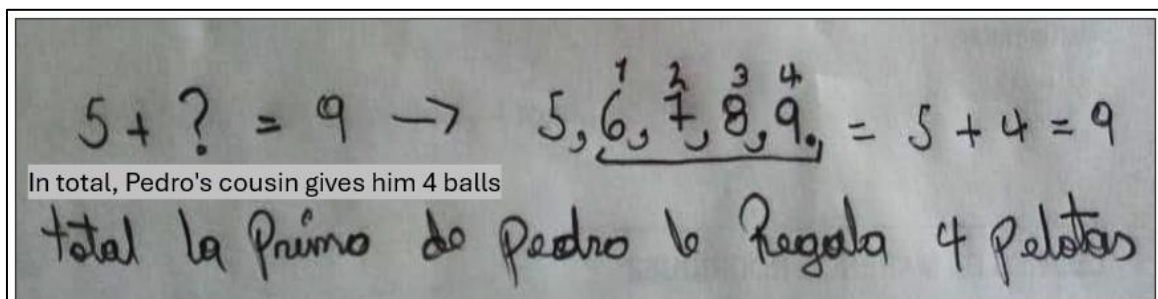 1 2 3 4
5 + ? = 9 → 5, 6, 7, 8, 9., = 5 + 4 = 9
In total, Pedro's cousin gives him 4 balls
total la Primo de pedro le Regala 4 Pelotas